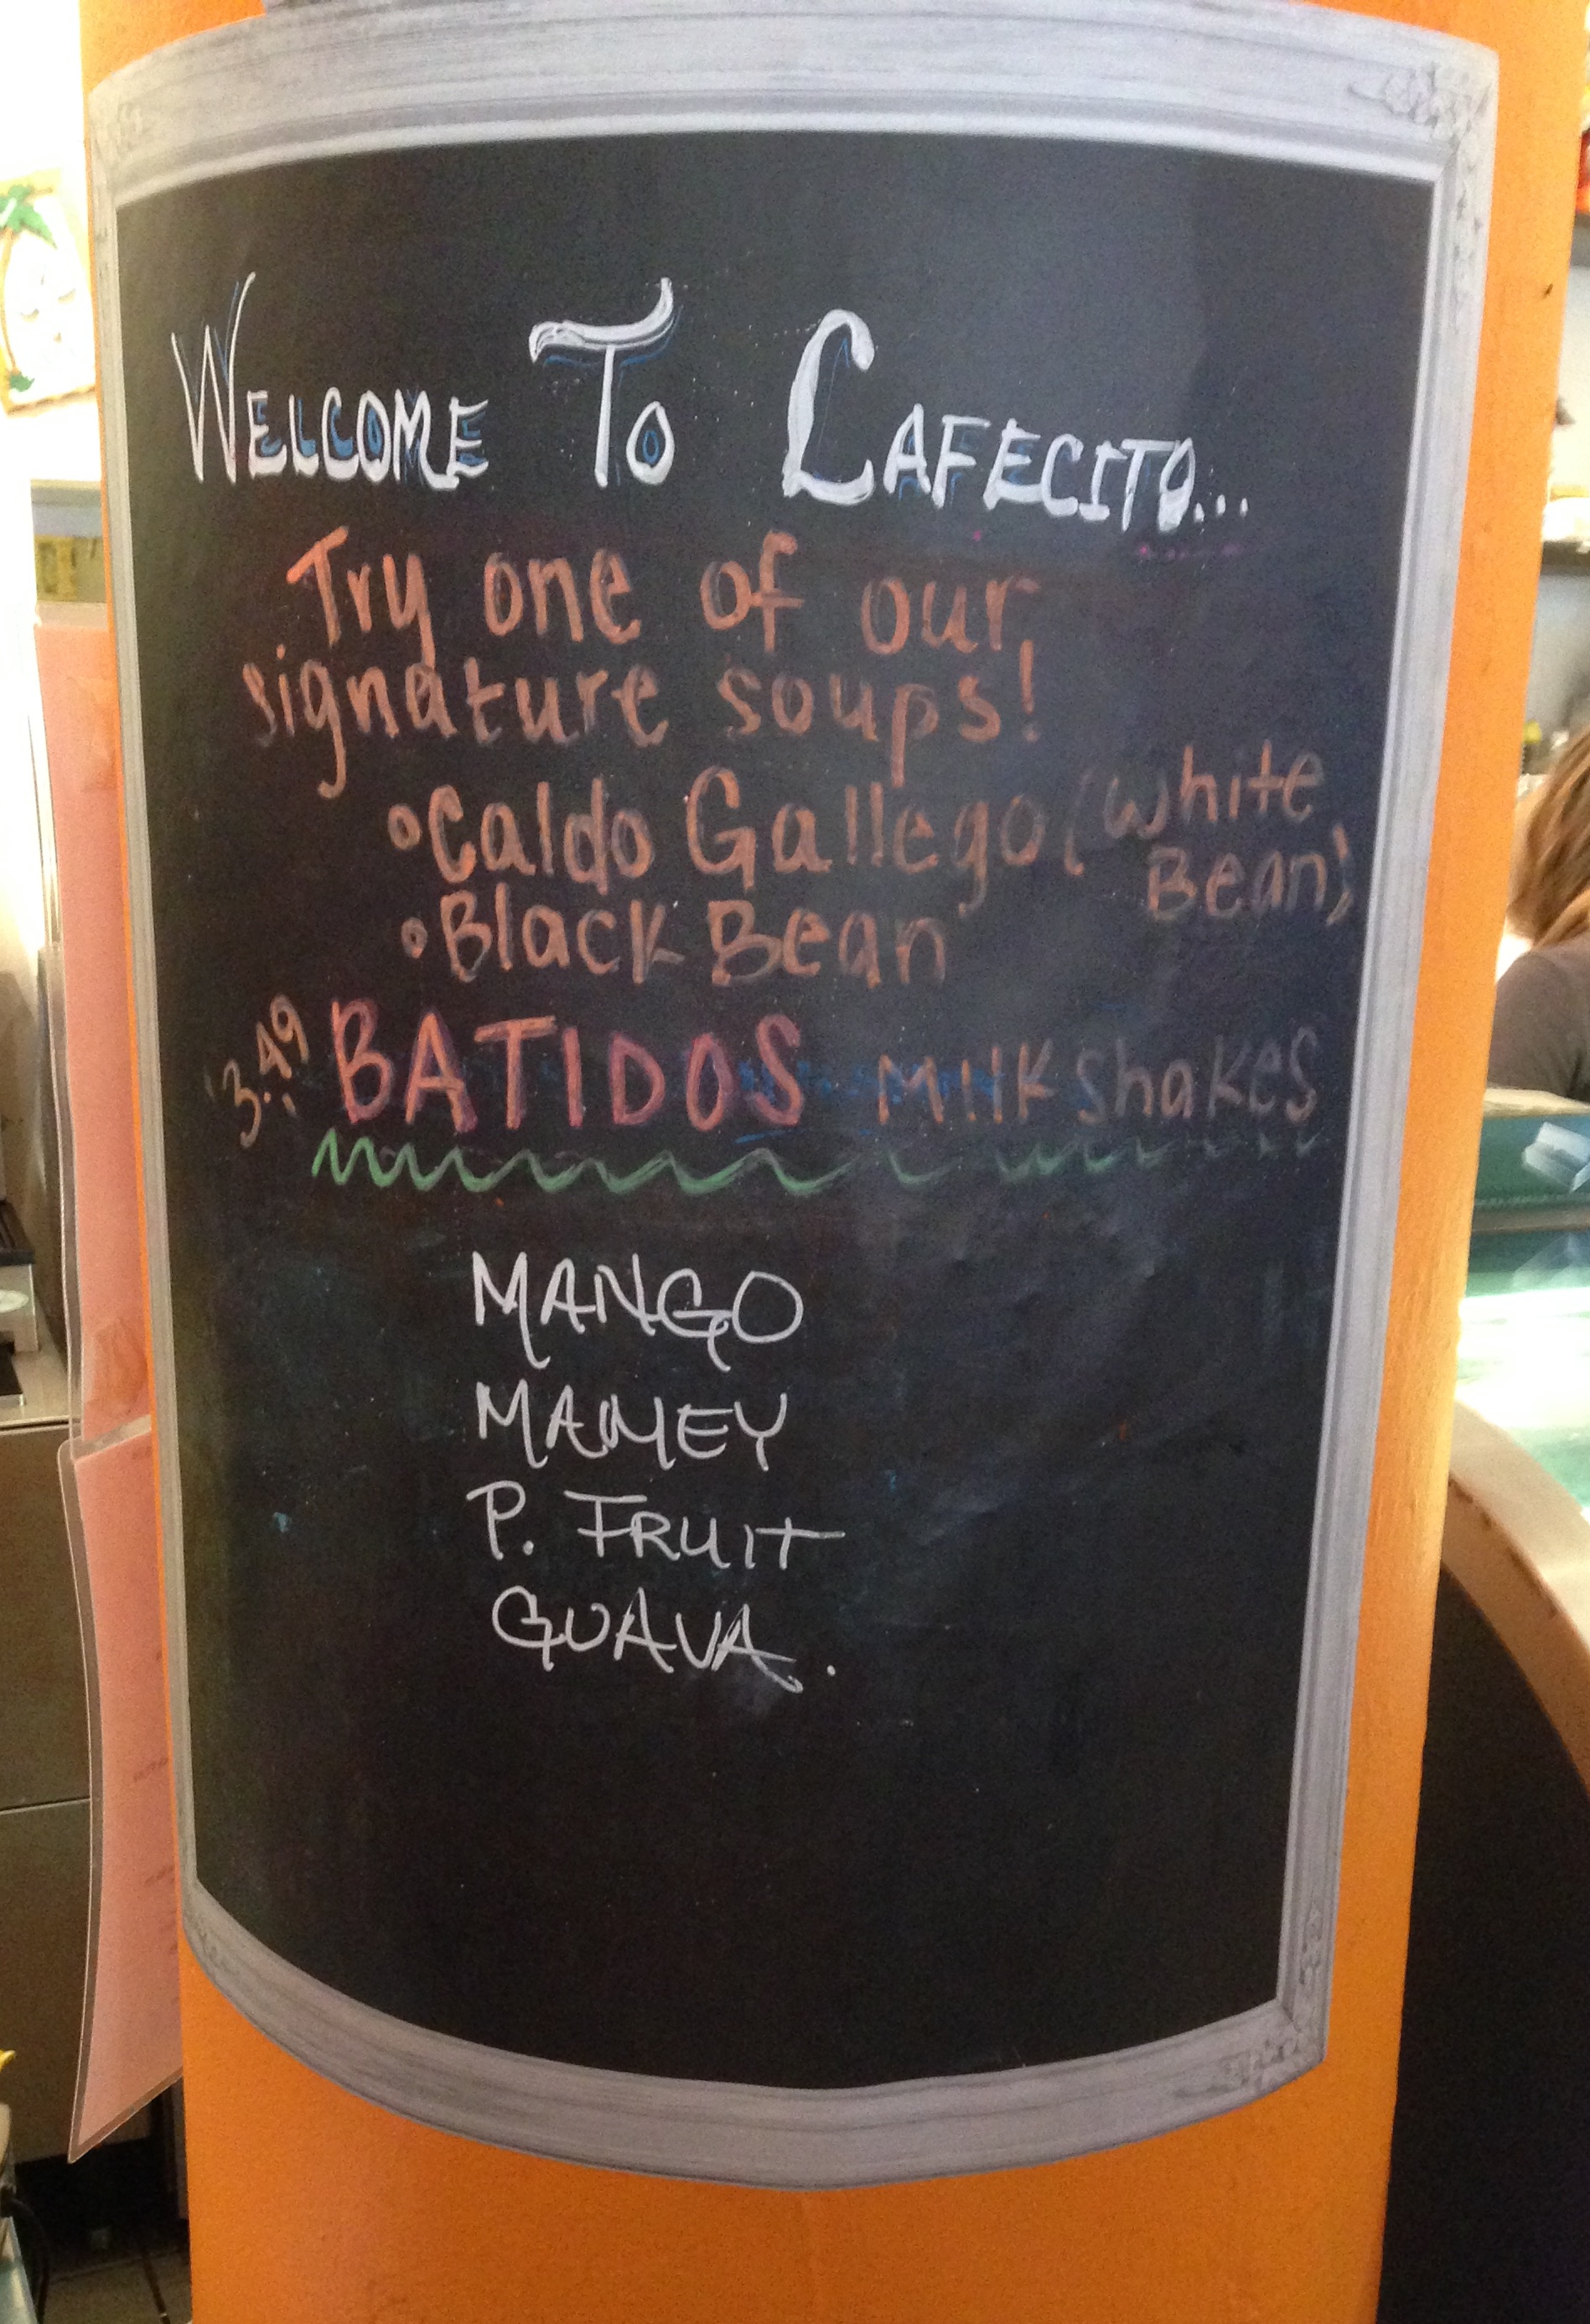 WELCOME TO CAFECITO...
Try one of our
signature soups!
•Caldo Gallego (White
Bean)
•Black Bean
3.49 BATIDOS Milkshakes
MANGO
MAMEY
P. FRUIT
GUAVA.